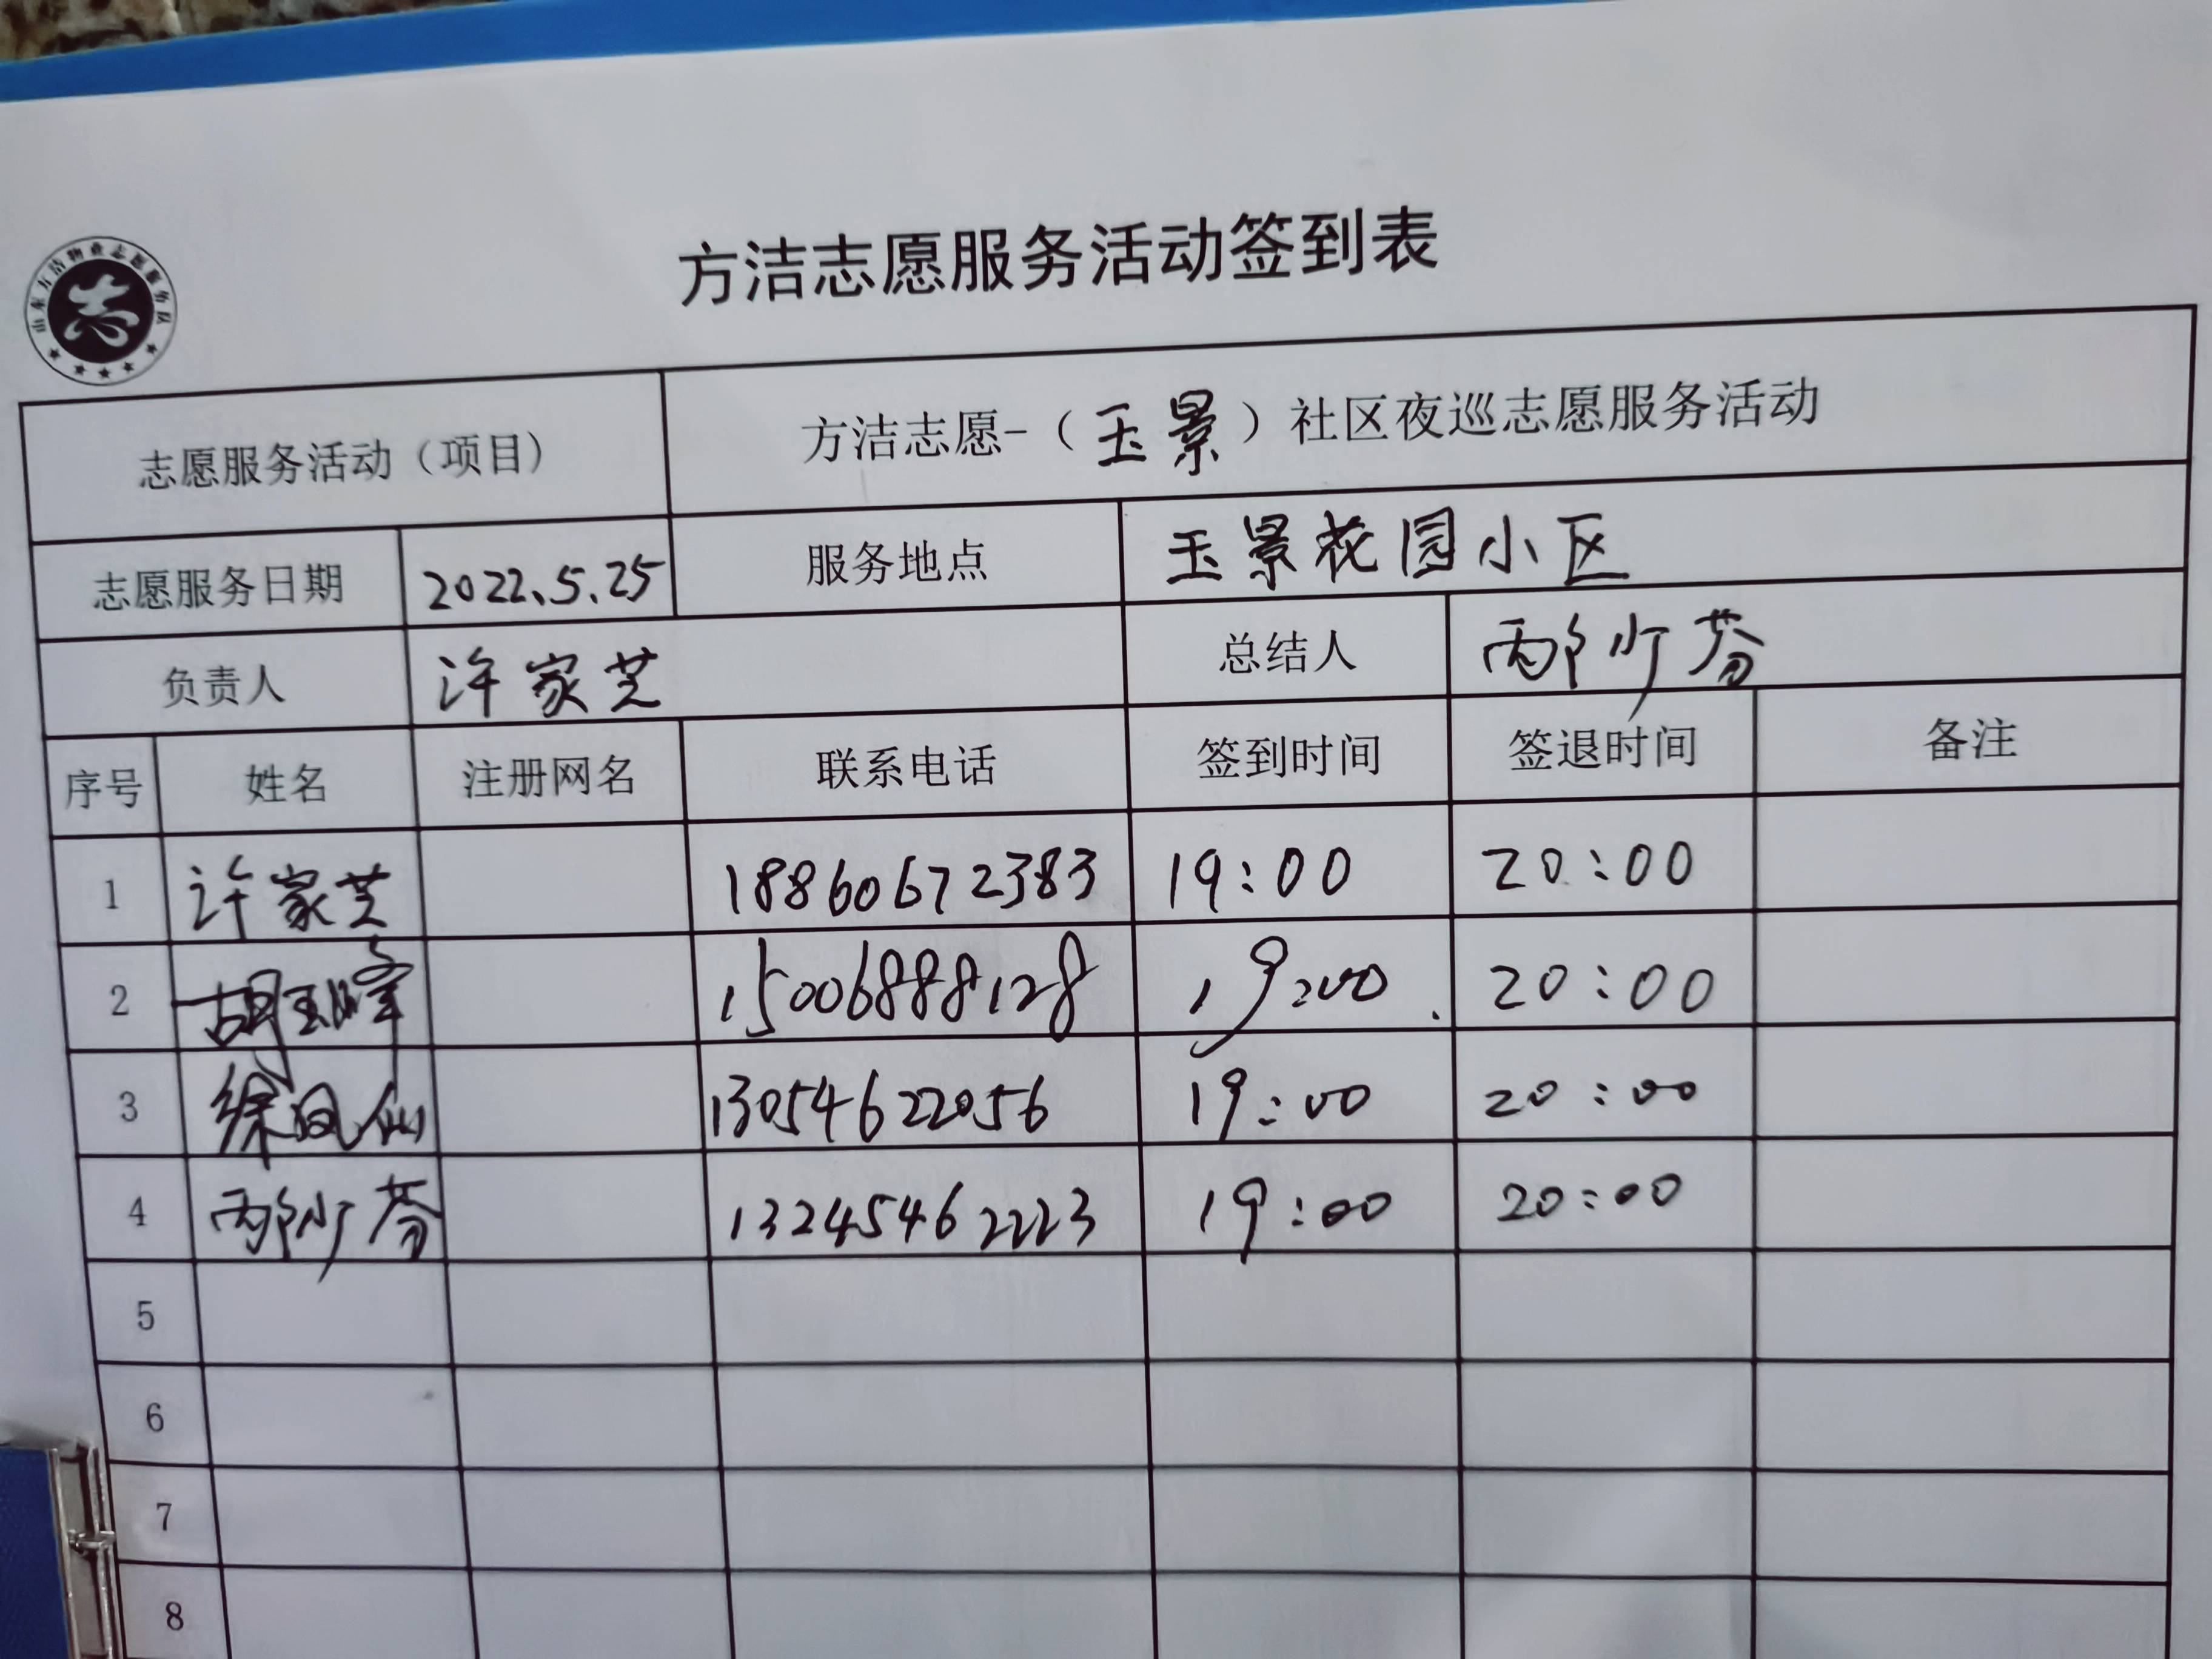 方洁志愿服务活动签到表
山东方洁物业志愿服务队
志
志愿服务活动（项目） 方洁志愿-（玉景）社区夜巡志愿服务活动
志愿服务日期 2022.5.25 服务地点 玉景花园小区
负责人 许家芝 总结人 邴少芬
序号 姓名 注册网名 联系电话 签到时间 签退时间 备注
1 许家芝 18860672383 19:00 20:00
2 胡 15006888128 19:00 20:00
3 徐凤仙 13054622056 19:00 20:00
4 邴少芬 13245462223 19:00 20:00
5
6
7
8